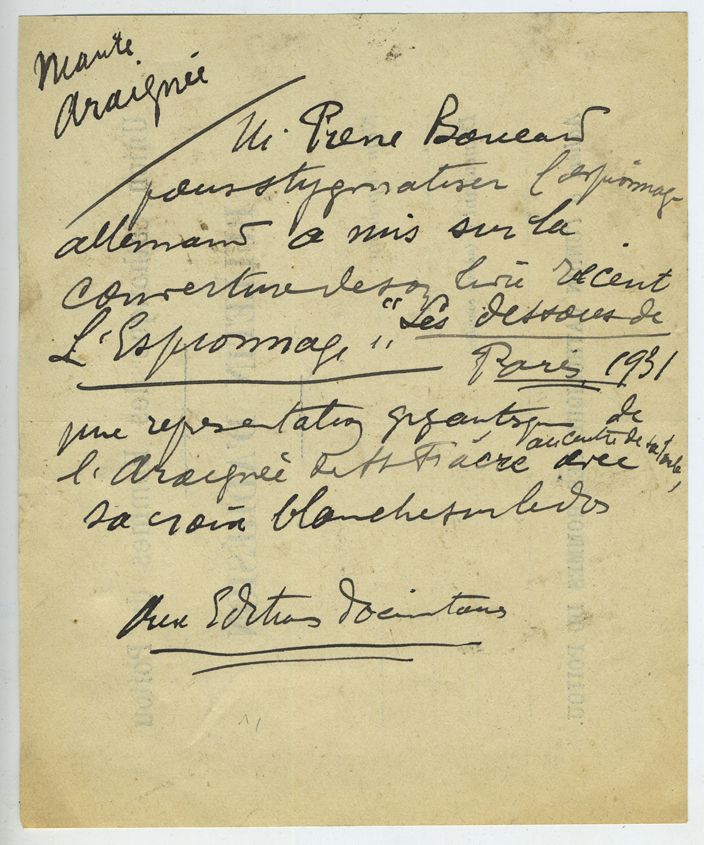 Mante
Araignée
M. Pierre Boucard
pour stygmatiser l'espionnage
allemand a mis sur la
couverture de son livre récent
"Les dessous de
L'Espionnage"
Paris, 1931
une representation gigantesque de
au centre de sa toile,
l'Araignée de St Fiacre avec
sa croix blanche sur le dos
Aux Editions Documentaires